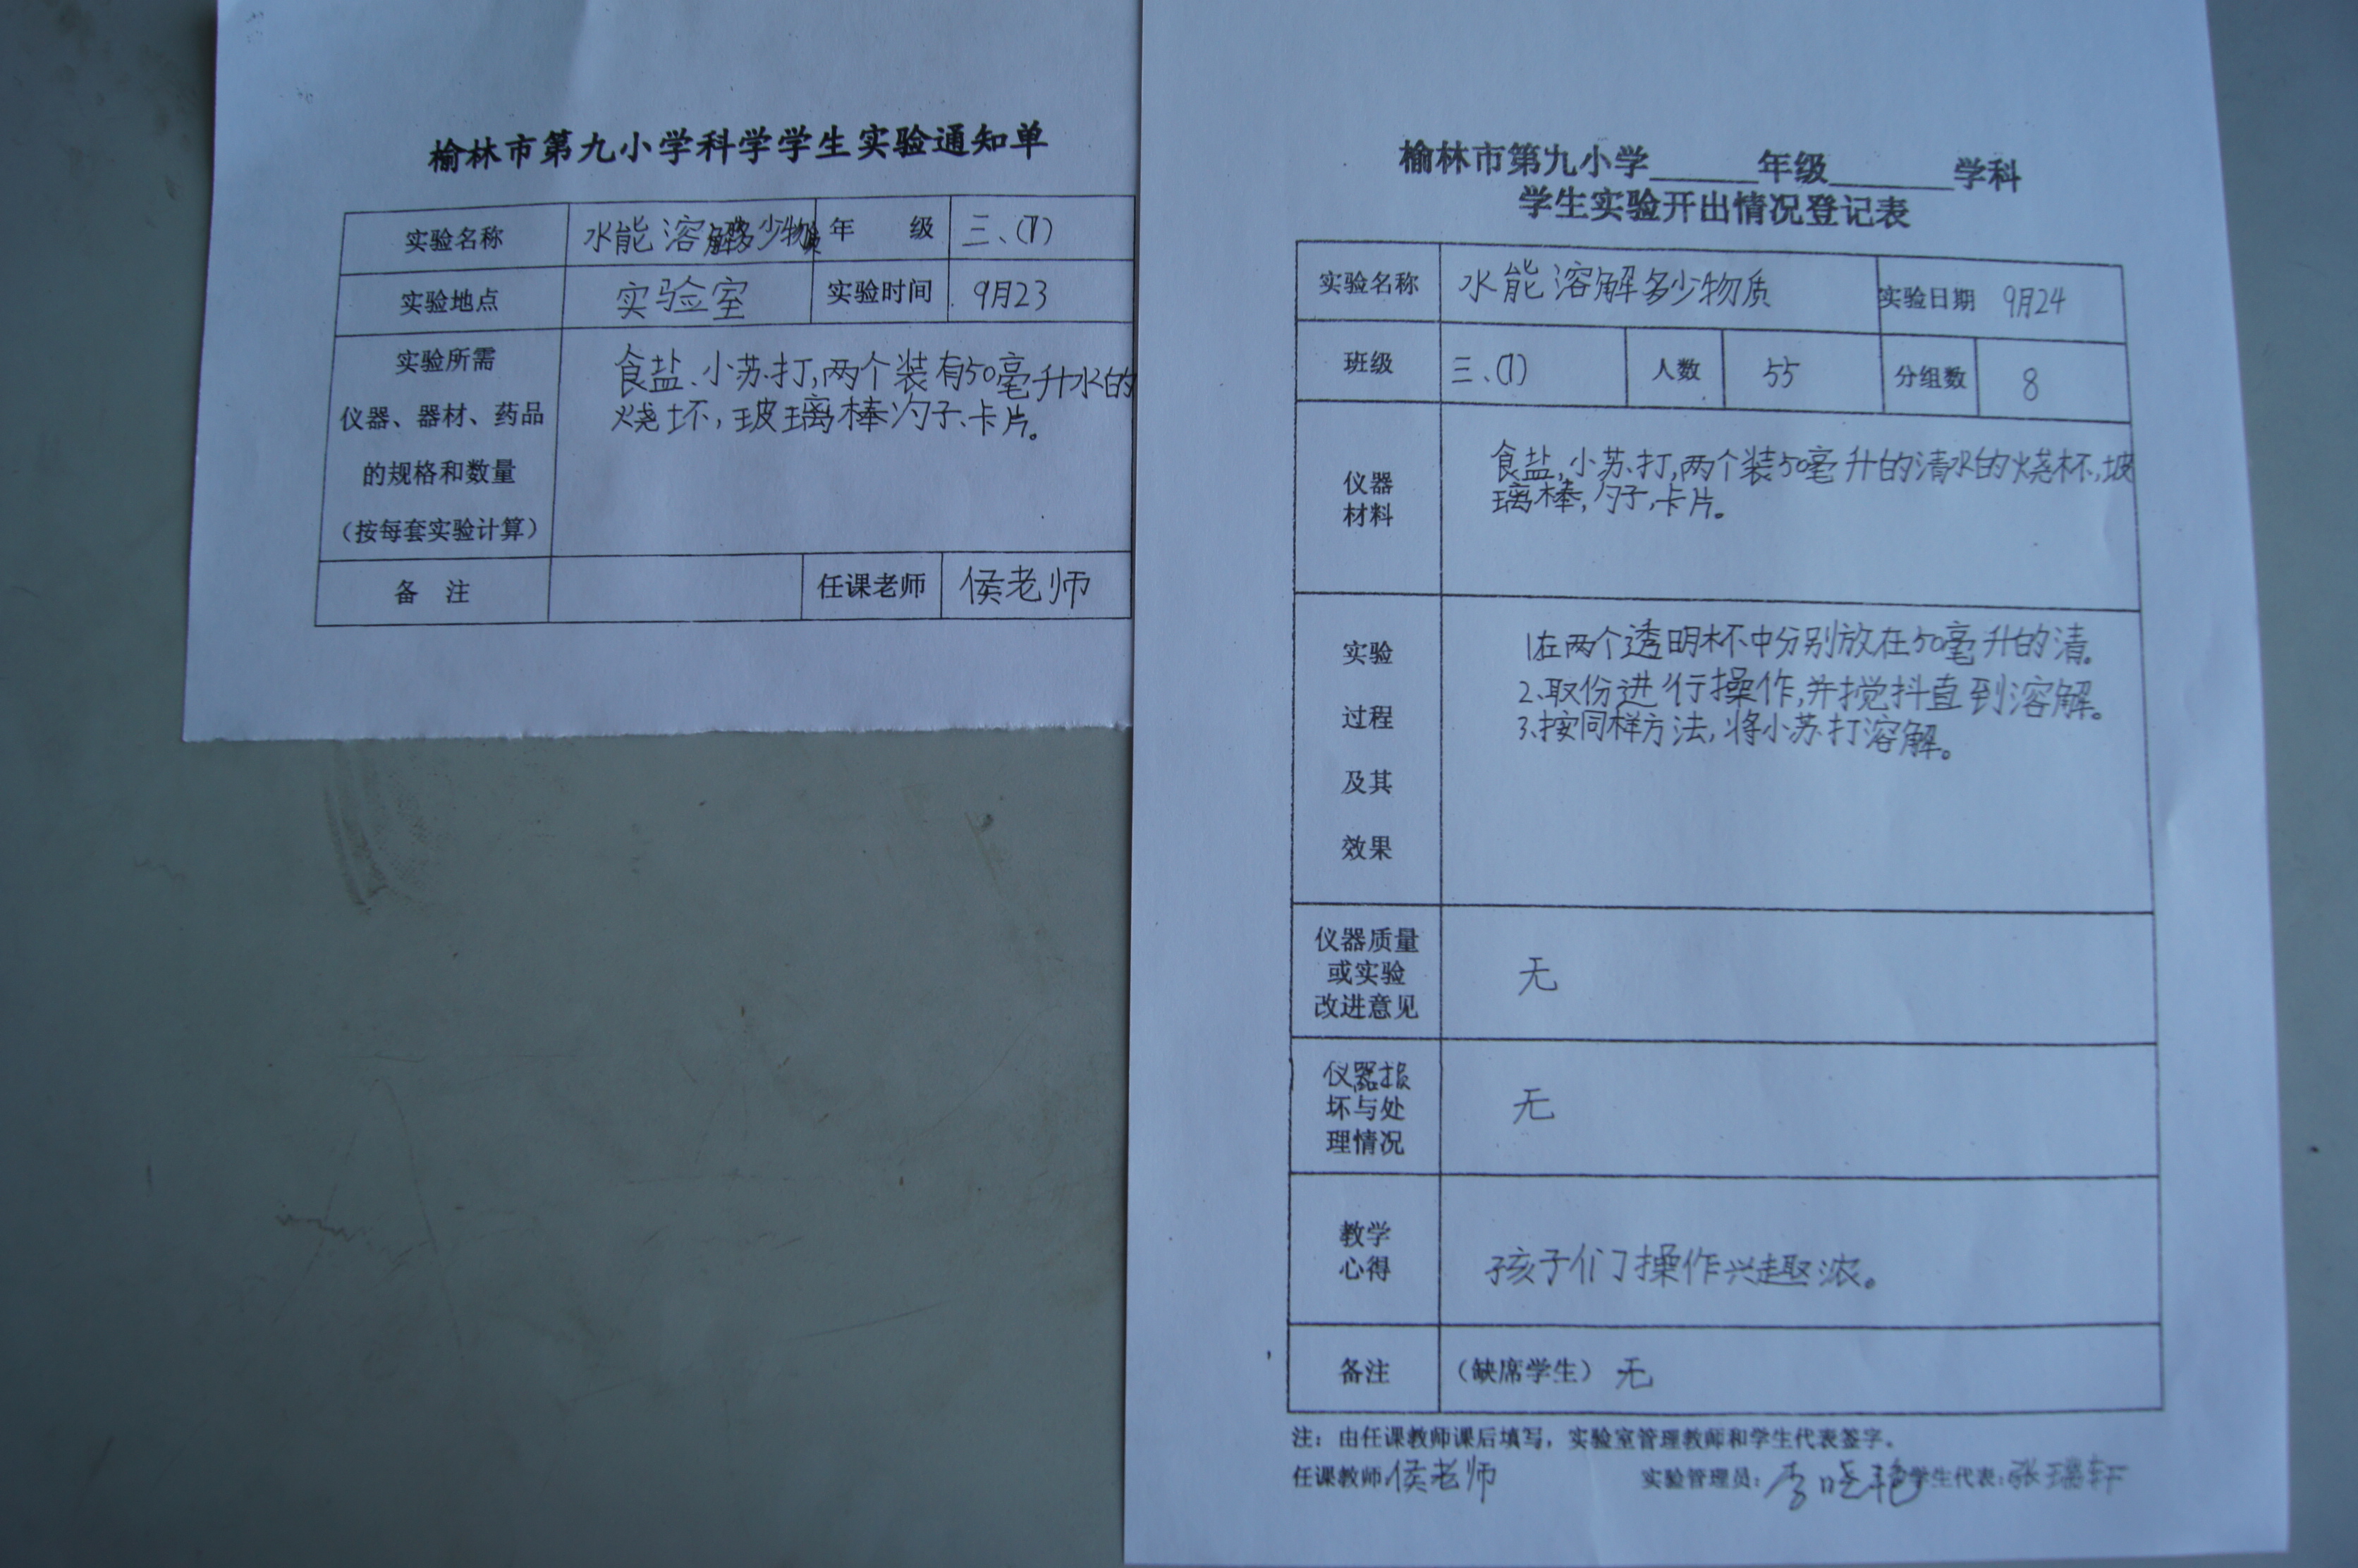 榆林市第九小学科学学生实验通知单
实验名称 水能溶解多少物质 年 级 三、(1)
实验地点 实验室 实验时间 9月23
实验所需
仪器、器材、药品
的规格和数量
（按每套实验计算）
食盐、小苏打,两个装有50毫升水的
烧坏,玻璃棒勺子、卡片。
备 注 任课老师 侯老师
榆林市第九小学______年级_______学科
学生实验开出情况登记表
实验名称 水能溶解多少物质 实验日期 9月24
班级 三、(1) 人数 55 分组数 8
仪器
材料
食盐,小苏打,两个装50毫升的清水的烧杯,玻
璃棒,勺子,卡片。
实验
过程
及其
效果
1在两个透明杯中分别放在50毫升的清。
2、取份进行操作,并搅抖直到溶解。
3、按同样方法,将小苏打溶解。
仪器质量
或实验
改进意见
无
仪器损
坏与处
理情况
无
教学
心得
孩子们操作兴趣浓。
备注 （缺席学生）无
注：由任课教师课后填写，实验室管理教师和学生代表签字。
任课教师 侯老师 实验管理员：李晓艳 学生代表：张瑞轩